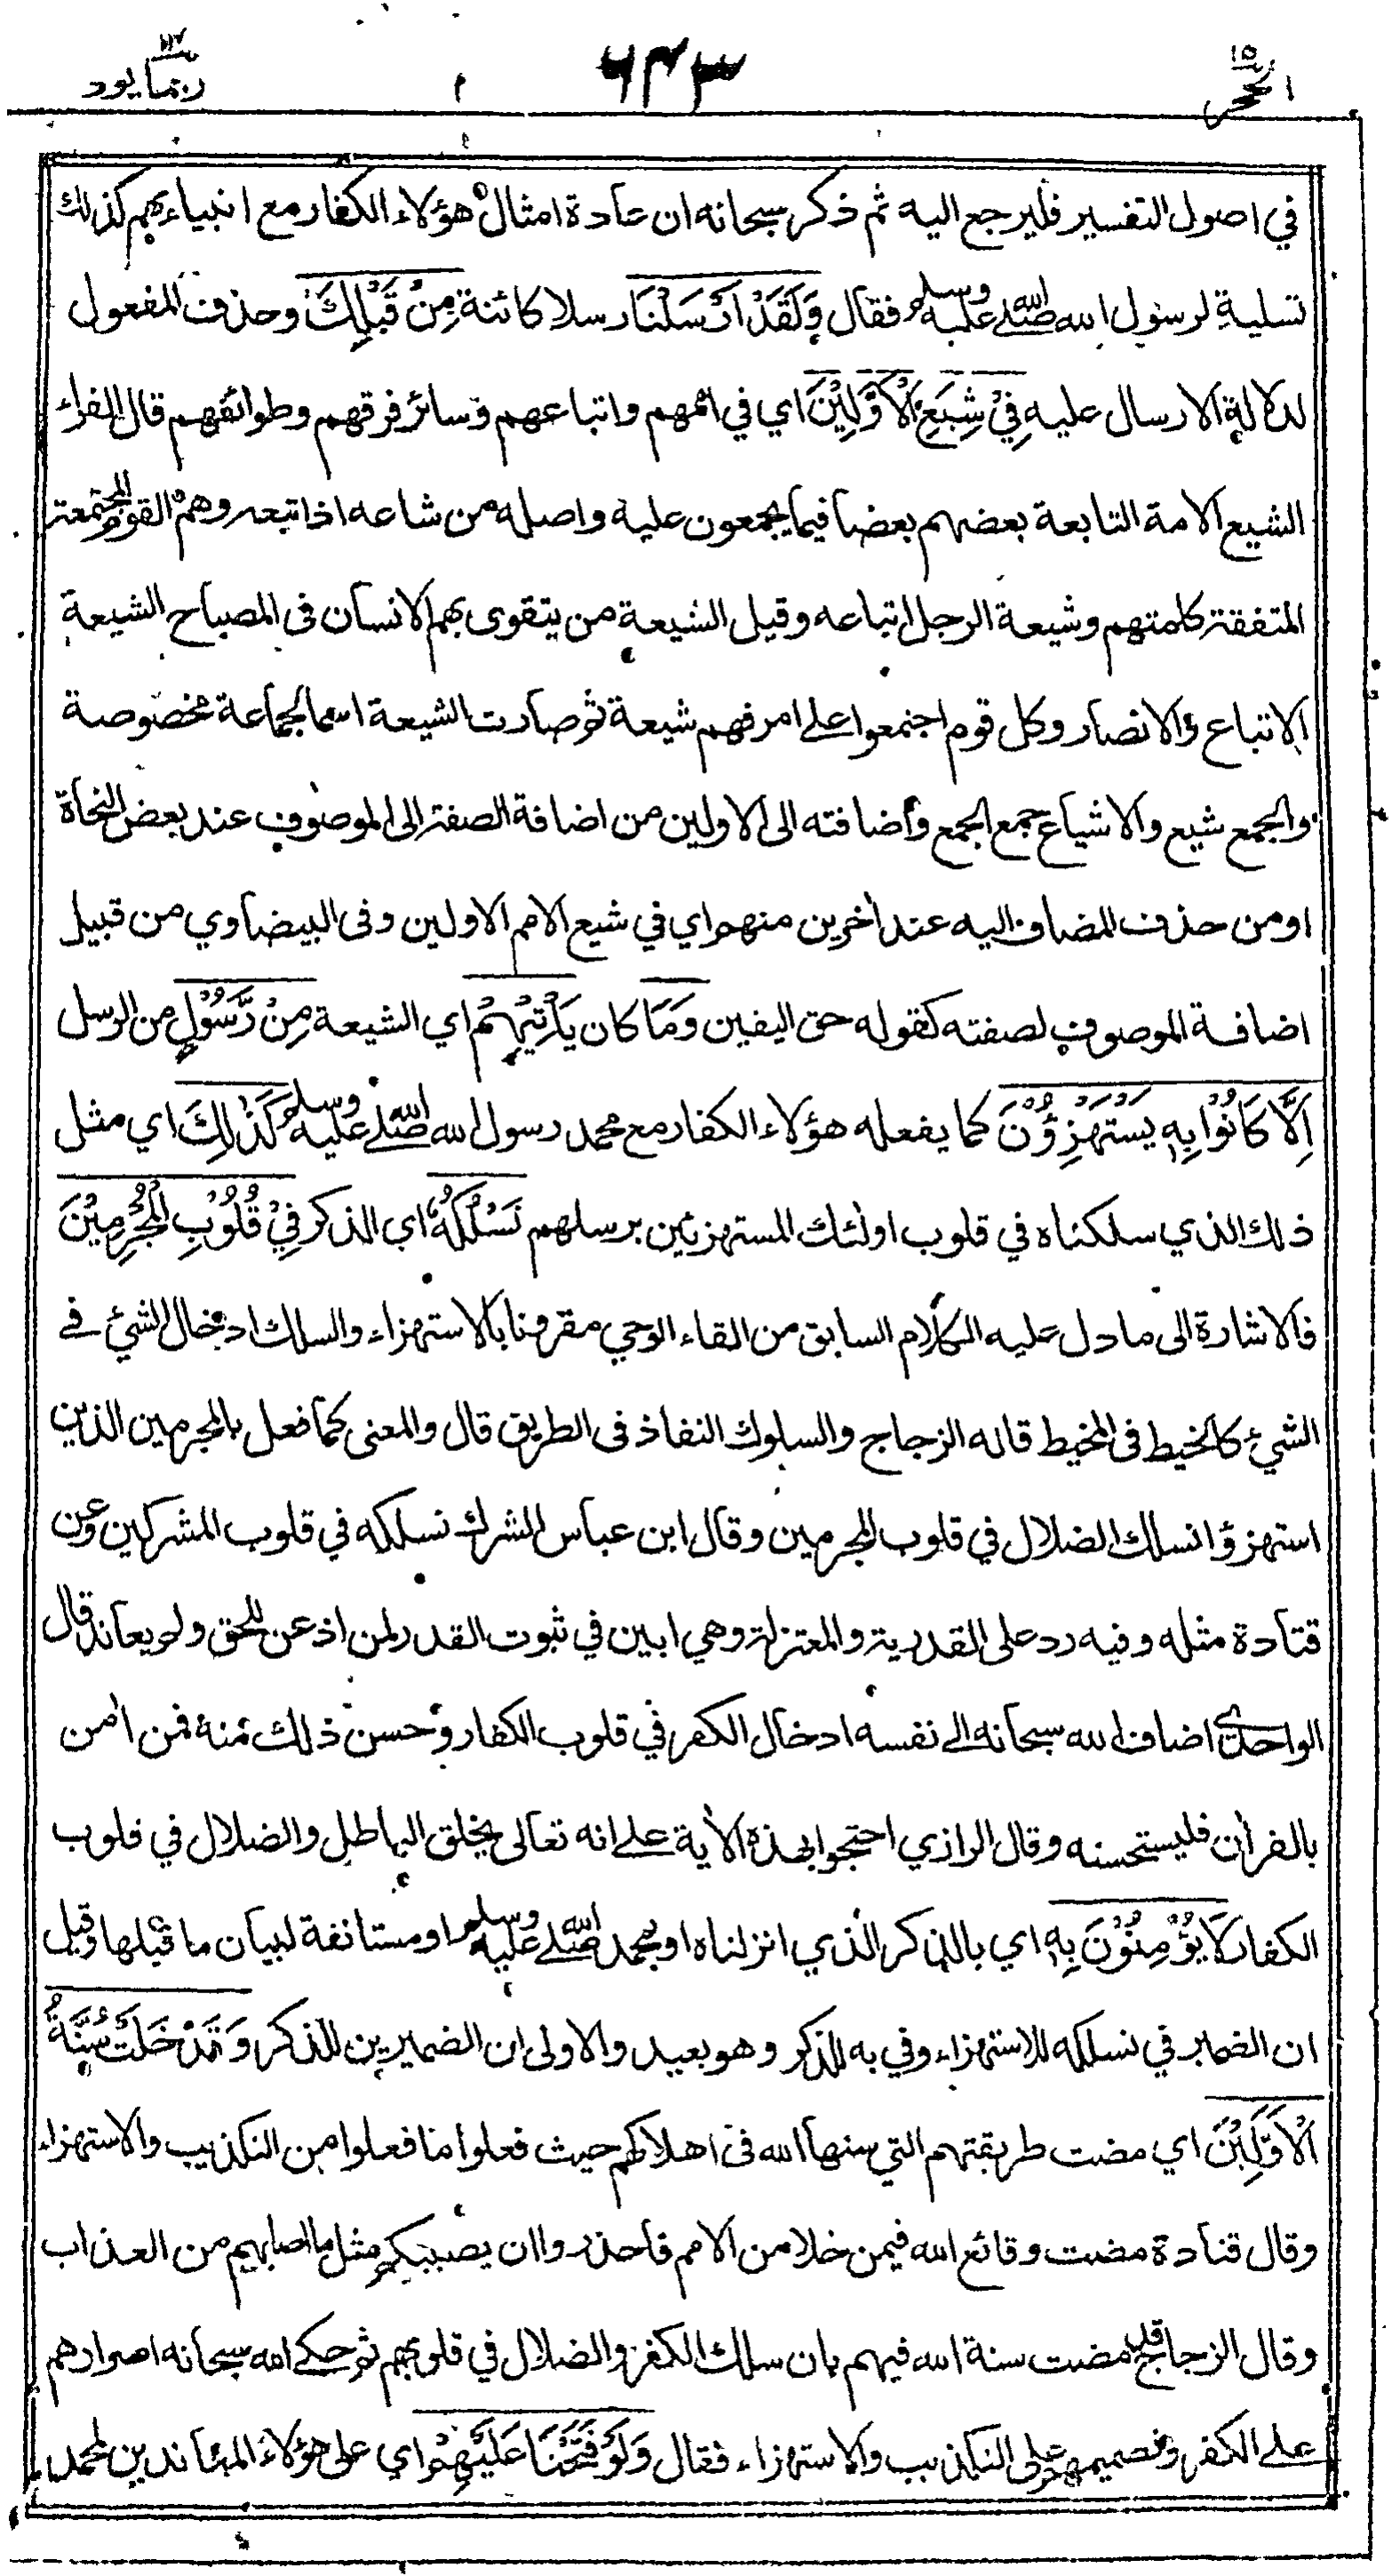 الحجر ١٥
٦٤٣
ربما يود ١٤
في اصول التفسير فليرجع اليه ثم ذكر سبحانه ان عادة امثال هؤلاء الكفار مع انبياءهم كذلك
تسلية لرسول الله صلى الله عليه وسلم فقال وَلَقَدْ اَرْسَلْنَا رسلا كائنة مِنْ قَبْلِكَ وحذف المفعول
لدلالة الارسال عليه فِيْ شِيَعِ الْاَوَّلِيْنَ اي في اممهم واتباعهم وسائر فرقهم وطوائفهم قال الفراء
الشيع الامة التابعة بعضهم بعضا فيما يجمعون عليه واصله من شاعه اذا تبعه وهم القوم المجتمعة
المتفقة كلمتهم وشيعة الرجل اتباعه وقيل الشيعة من يتقوى بهم الانسان فى المصباح الشيعة
الاتباع والانصار وكل قوم اجتمعوا على امر فهم شيعة ثم صارت الشيعة اسما لجماعة مخصوصة
والجمع شيع والاشياع جمع الجمع واضافته الى الاولين من اضافة الصفة الى الموصوف عند بعض النحاة
او من حذف المضاف اليه عند اخرين منهم اي في شيع الامم الاولين وفى البيضاوي من قبيل
اضافة الموصوف لصفته كقوله حق اليقين وَمَا كان يَأْتِيْهِمْ اي الشيعة مِنْ رَّسُوْلٍ من الرسل
اِلَّا كَانُوْا بِهٖ يَسْتَهْزِؤُنَ كما يفعله هؤلاء الكفار مع محمد رسول الله صلى الله عليه وسلم كَذٰلِكَ اي مثل
ذلك الذي سلكناه في قلوب اولئك المستهزئين برسلهم نَسْلُكُهٗ اي الذكر فِيْ قُلُوْبِ الْمُجْرِمِيْنَ
فالاشارة الى ما دل عليه الكلام السابق من القاء الوحي مقرونا بالاستهزاء والسلك ادخال الشيء في
الشيء كالخيط فى المخيط قاله الزجاج والسلوك النفاذ فى الطريق قال والمعنى كما فعل بالمجرمين الذين
استهزؤا نسلك الضلال في قلوب المجرمين وقال ابن عباس الشرك نسلكه في قلوب المشركين وعن
قتادة مثله وفيه رد على القدرية والمعتزلة وهي ابين في ثبوت القدر لمن اذعن للحق ولم يعاند قال
الواحدي اضاف الله سبحانه الى نفسه ادخال الكفر في قلوب الكفار وحسن ذلك منه فمن امن
بالقرأن فليستحسنه وقال الرازي احتجوا بهذه الأية على انه تعالى يخلق الباطل والضلال في قلوب
الكفار لَا يُؤْمِنُوْنَ بِهٖ اي بالذكر الذي انزلناه او بمحمد صلى الله عليه وسلم او مستانفة لبيان ما قبلها وقيل
ان الضمير في نسلكه للاستهزاء وفي به للذكر وهو بعيد والاولى ان الضميرين للذكر وَقَدْ خَلَتْ سُنَّةُ
الْاَوَّلِيْنَ اي مضت طريقتهم التي سنها الله فى اهلاكهم حيث فعلوا ما فعلوا من التكذيب والاستهزاء
وقال قتادة مضت وقائع الله فيمن خلا من الامم فاحذروا ان يصيبكم مثل ما اصابهم من العذاب
وقال الزجاج قد مضت سنة الله فيهم بان سلك الكفر والضلال في قلوبهم ثم حكى الله سبحانه اصرارهم
على الكفر وتصميمهم على التكذيب والاستهزاء فقال وَلَوْ فَتَحْنَا عَلَيْهِمْ اي على هؤلاء المعاندين لمحمد